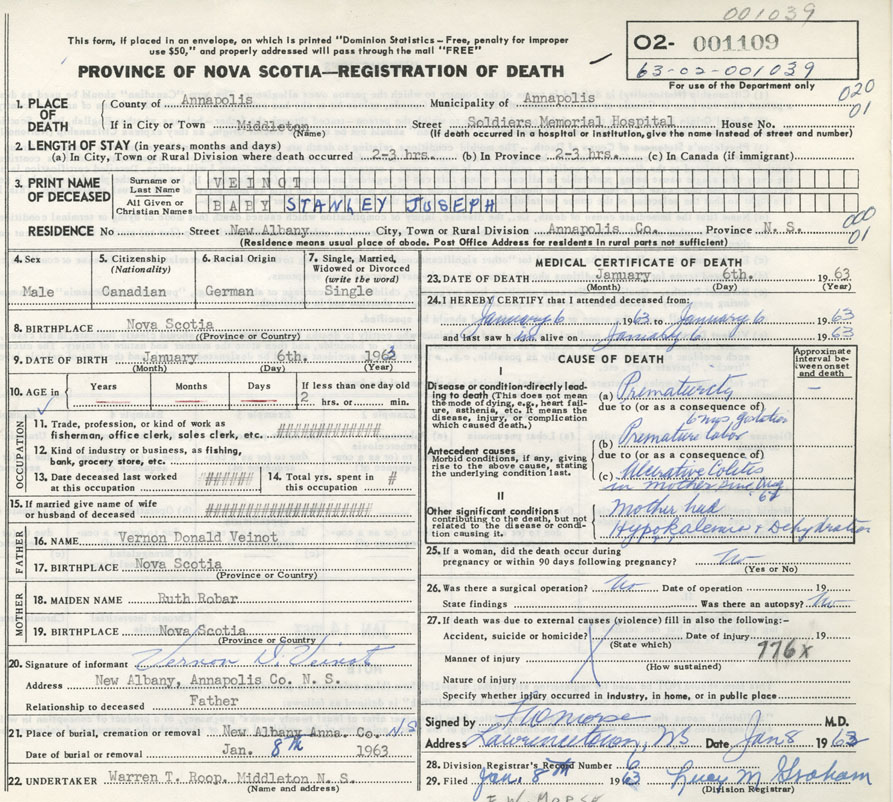 001039
This form, if placed in an envelope, on which is printed "Dominion Statistics – Free, penalty for improper
use $50," and properly addressed will pass through the mail "FREE"
PROVINCE OF NOVA SCOTIA—REGISTRATION OF DEATH
02- 001109
63-02-001039
For use of the Department only
020
01
1. PLACE OF DEATH
County of Annapolis Municipality of Annapolis
If in City or Town Middleton (Name) Street Soldiers Memorial Hospital House No.
(If death occurred in a hospital or institution, give the name instead of street and number)
2. LENGTH OF STAY (in years, months and days)
(a) In City, Town or Rural Division where death occurred 2-3 hrs. (b) In Province 2-3 hrs. (c) In Canada (if immigrant)
3. PRINT NAME OF DECEASED
Surname or Last Name VEINOT
All Given or Christian Names BABY STANLEY JOSEPH
000
01
RESIDENCE No Street New Albany City, Town or Rural Division Annapolis Co. Province N. S.
(Residence means usual place of abode. Post Office Address for residents in rural parts not sufficient)
4. Sex
Male
5. Citizenship (Nationality)
Canadian
6. Racial Origin
German
7. Single, Married, Widowed or Divorced (write the word)
Single
8. BIRTHPLACE Nova Scotia
(Province or Country)
9. DATE OF BIRTH January 6th. 1963
(Month) (Day) (Year)
10. AGE in Years Months Days If less than one day old
2 hrs. or min.
OCCUPATION
11. Trade, profession, or kind of work as fisherman, office clerk, sales clerk, etc. ############
12. Kind of industry or business, as fishing, bank, grocery store, etc.
13. Date deceased last worked at this occupation ###### 14. Total yrs. spent in this occupation #
15. If married give name of wife or husband of deceased ####################
FATHER
16. NAME Vernon Donald Veinot
17. BIRTHPLACE Nova Scotia
(Province or Country)
MOTHER
18. MAIDEN NAME Ruth Robar
19. BIRTHPLACE Nova Scotia
(Province or Country
20. Signature of informant Vernon D. Veinot
Address New Albany, Annapolis Co. N. S.
Relationship to deceased Father
21. Place of burial, cremation or removal New Albany Anna. Co. N S
Date of burial or removal Jan. 8th 1963
22. UNDERTAKER Warren T. Roop. Middleton N. S.
(Name and address)
MEDICAL CERTIFICATE OF DEATH
23. DATE OF DEATH January 6th. 1963
(Month) (Day) (Year)
24. I HEREBY CERTIFY that I attended deceased from:
January 6 1963 to January 6 1963
and last saw him alive on January 6 1963
CAUSE OF DEATH
Approximate interval between onset and death
I
Disease or condition directly leading to death (This does not mean the mode of dying, e.g., heart failure, asthenia, etc. It means the disease, injury, or complication which caused death.)
(a) Prematurity —
due to (or as a consequence of)
Antecedent causes
Morbid conditions, if any, giving rise to the above cause, stating the underlying condition last.
(b) Premature labor
due to (or as a consequence of)
(c) Ulcerative Colitis
in mother since Aug 62
II
Other significant conditions
contributing to the death, but not related to the disease or condition causing it.
Mother had
Hypokalemia + Dehydration
25. If a woman, did the death occur during pregnancy or within 90 days following pregnancy? No
(Yes or No)
26. Was there a surgical operation? No Date of operation 19
State findings Was there an autopsy? No
27. If death was due to external causes (violence) fill in also the following:-
Accident, suicide or homicide? Date of injury 19
(State which)
776x
Manner of injury
(How sustained)
Nature of injury
Specify whether injury occurred in industry, in home, or in public place
Signed by F W Morse M.D.
Address Lawrencetown, NS Date Jan 8 1963
28. Division Registrar's Record Number 6
29. Filed Jan. 8th 1963 Lucy M Graham
(Division Registrar)
F. W. MORSE